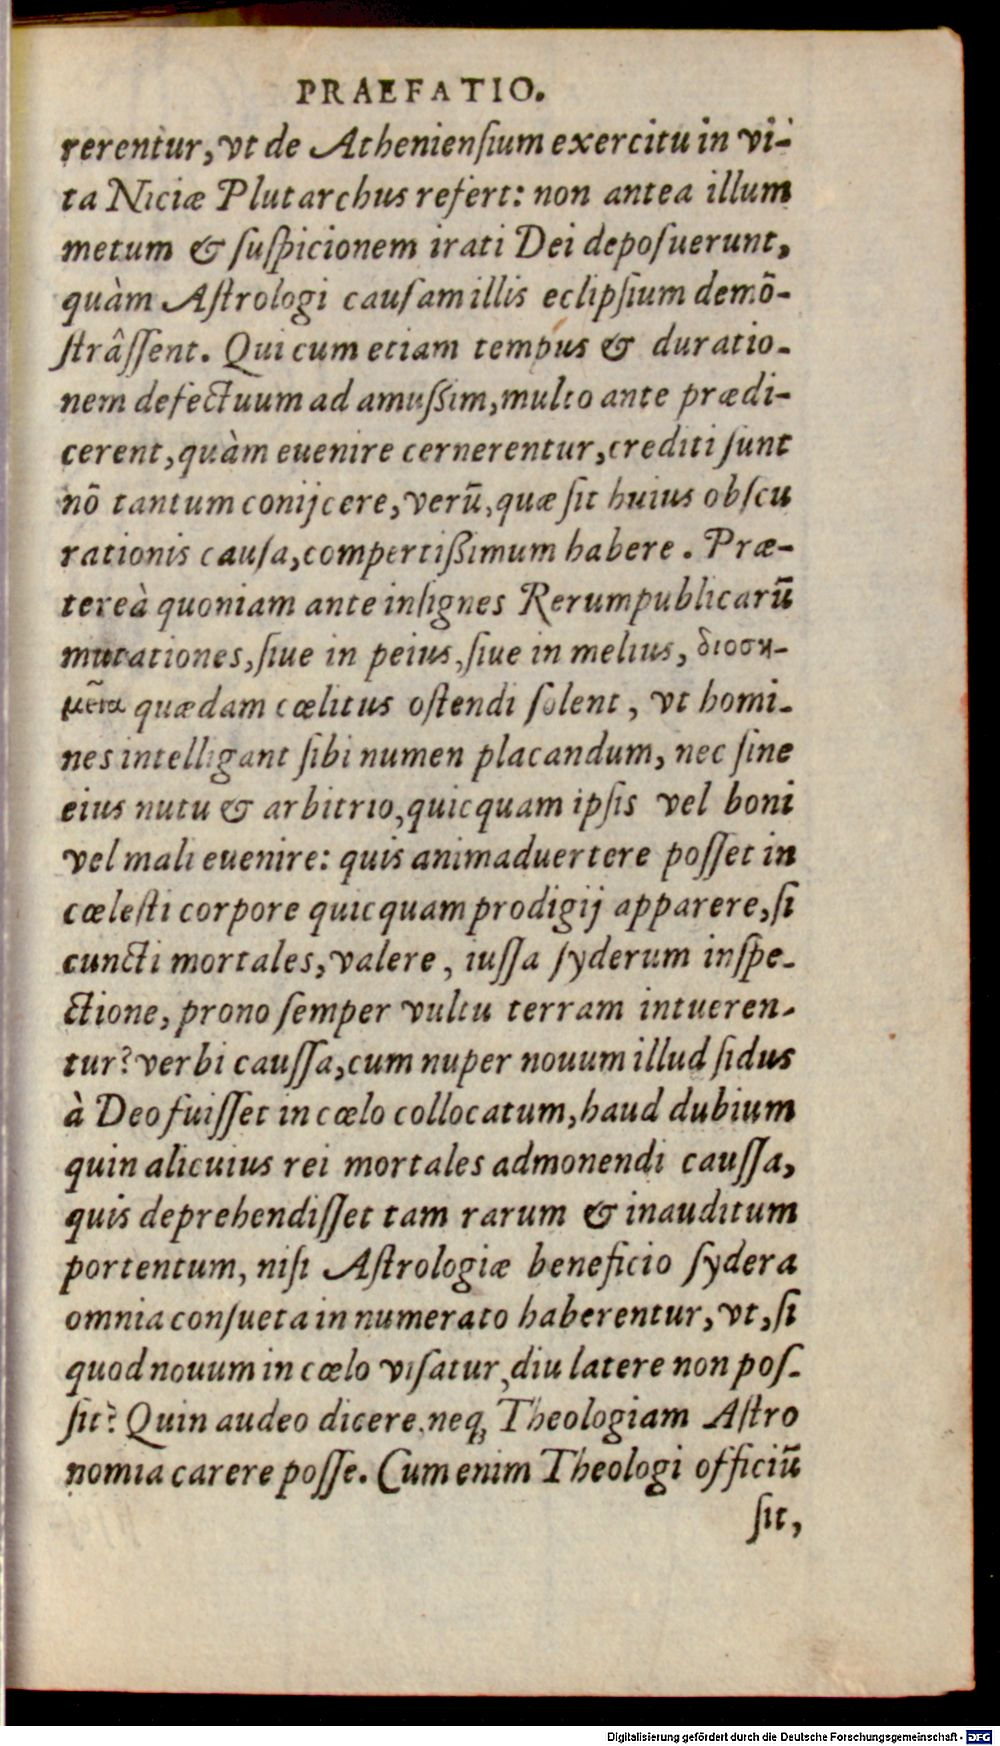 PRAEFATIO.
rerentur, vt de Athenienſium exercitu in vi-
ta Niciæ Plutarchus refert: non antea illum
metum & ſuſpicionem irati Dei depoſuerunt,
quàm Aſtrologi cauſam illis eclipſium demō-
ſtrâſſent. Qui cum etiam tempus & duratio-
nem defectuum ad amuſsim, multo ante prædi-
cerent, quàm euenire cernerentur, crediti ſunt
nō tantum conijcere, verū, quæ ſit huius obſcu
rationis cauſa, compertiſsimum habere. Præ-
tereà quoniam ante inſignes Rerumpublicarū
mutationes, ſiue in peius, ſiue in melius, διοση-
μεῖα quædam cœlitus oſtendi ſolent, vt homi-
nes intelligant ſibi numen placandum, nec ſine
eius nutu & arbitrio, quicquam ipſis vel boni
vel mali euenire: quis animaduertere poſſet in
cœleſti corpore quicquam prodigij apparere, ſi
cuncti mortales, valere, iuſſa ſyderum inſpe-
ctione, prono ſemper vultu terram intueren-
tur? verbi cauſſa, cum nuper nouum illud ſidus
à Deo fuiſſet in cœlo collocatum, haud dubium
quin alicuius rei mortales admonendi cauſſa,
quis deprehendiſſet tam rarum & inauditum
portentum, niſi Aſtrologiæ beneficio ſydera
omnia conſueta in numerato haberentur, vt, ſi
quod nouum in cœlo viſatur, diu latere non poſ-
ſit? Quin audeo dicere, neq; Theologiam Aſtro
nomia carere poſſe. Cum enim Theologi officiū
ſit,
Digitalisierung gefördert durch die Deutsche Forschungsgemeinschaft - DFG